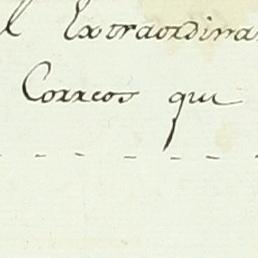 l Extraordina
Correos qu